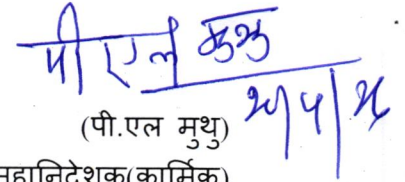 पी एल मुथु
(पी.एल मुथु)
महानिदेशक(कार्मिक)